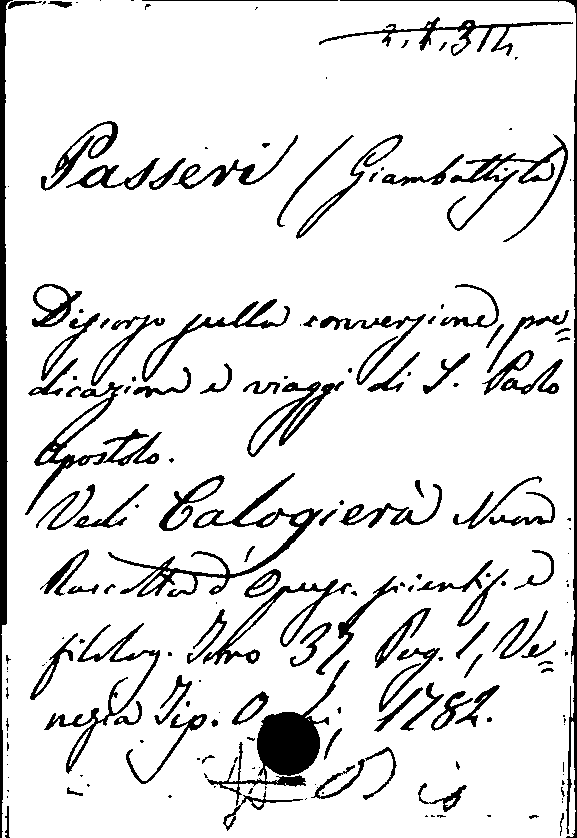 2.7.314.
Passeri (Giambattista)
Discorso sulla conversione, pre=
dicazione e viaggi di S. Paolo
Apostolo.
Vedi Calogierà Nuova
Raccolta d'Opusc. scientif. e
filolog. Tomo 37, Pag. 1, Ve=
nezia Tip. 1782.